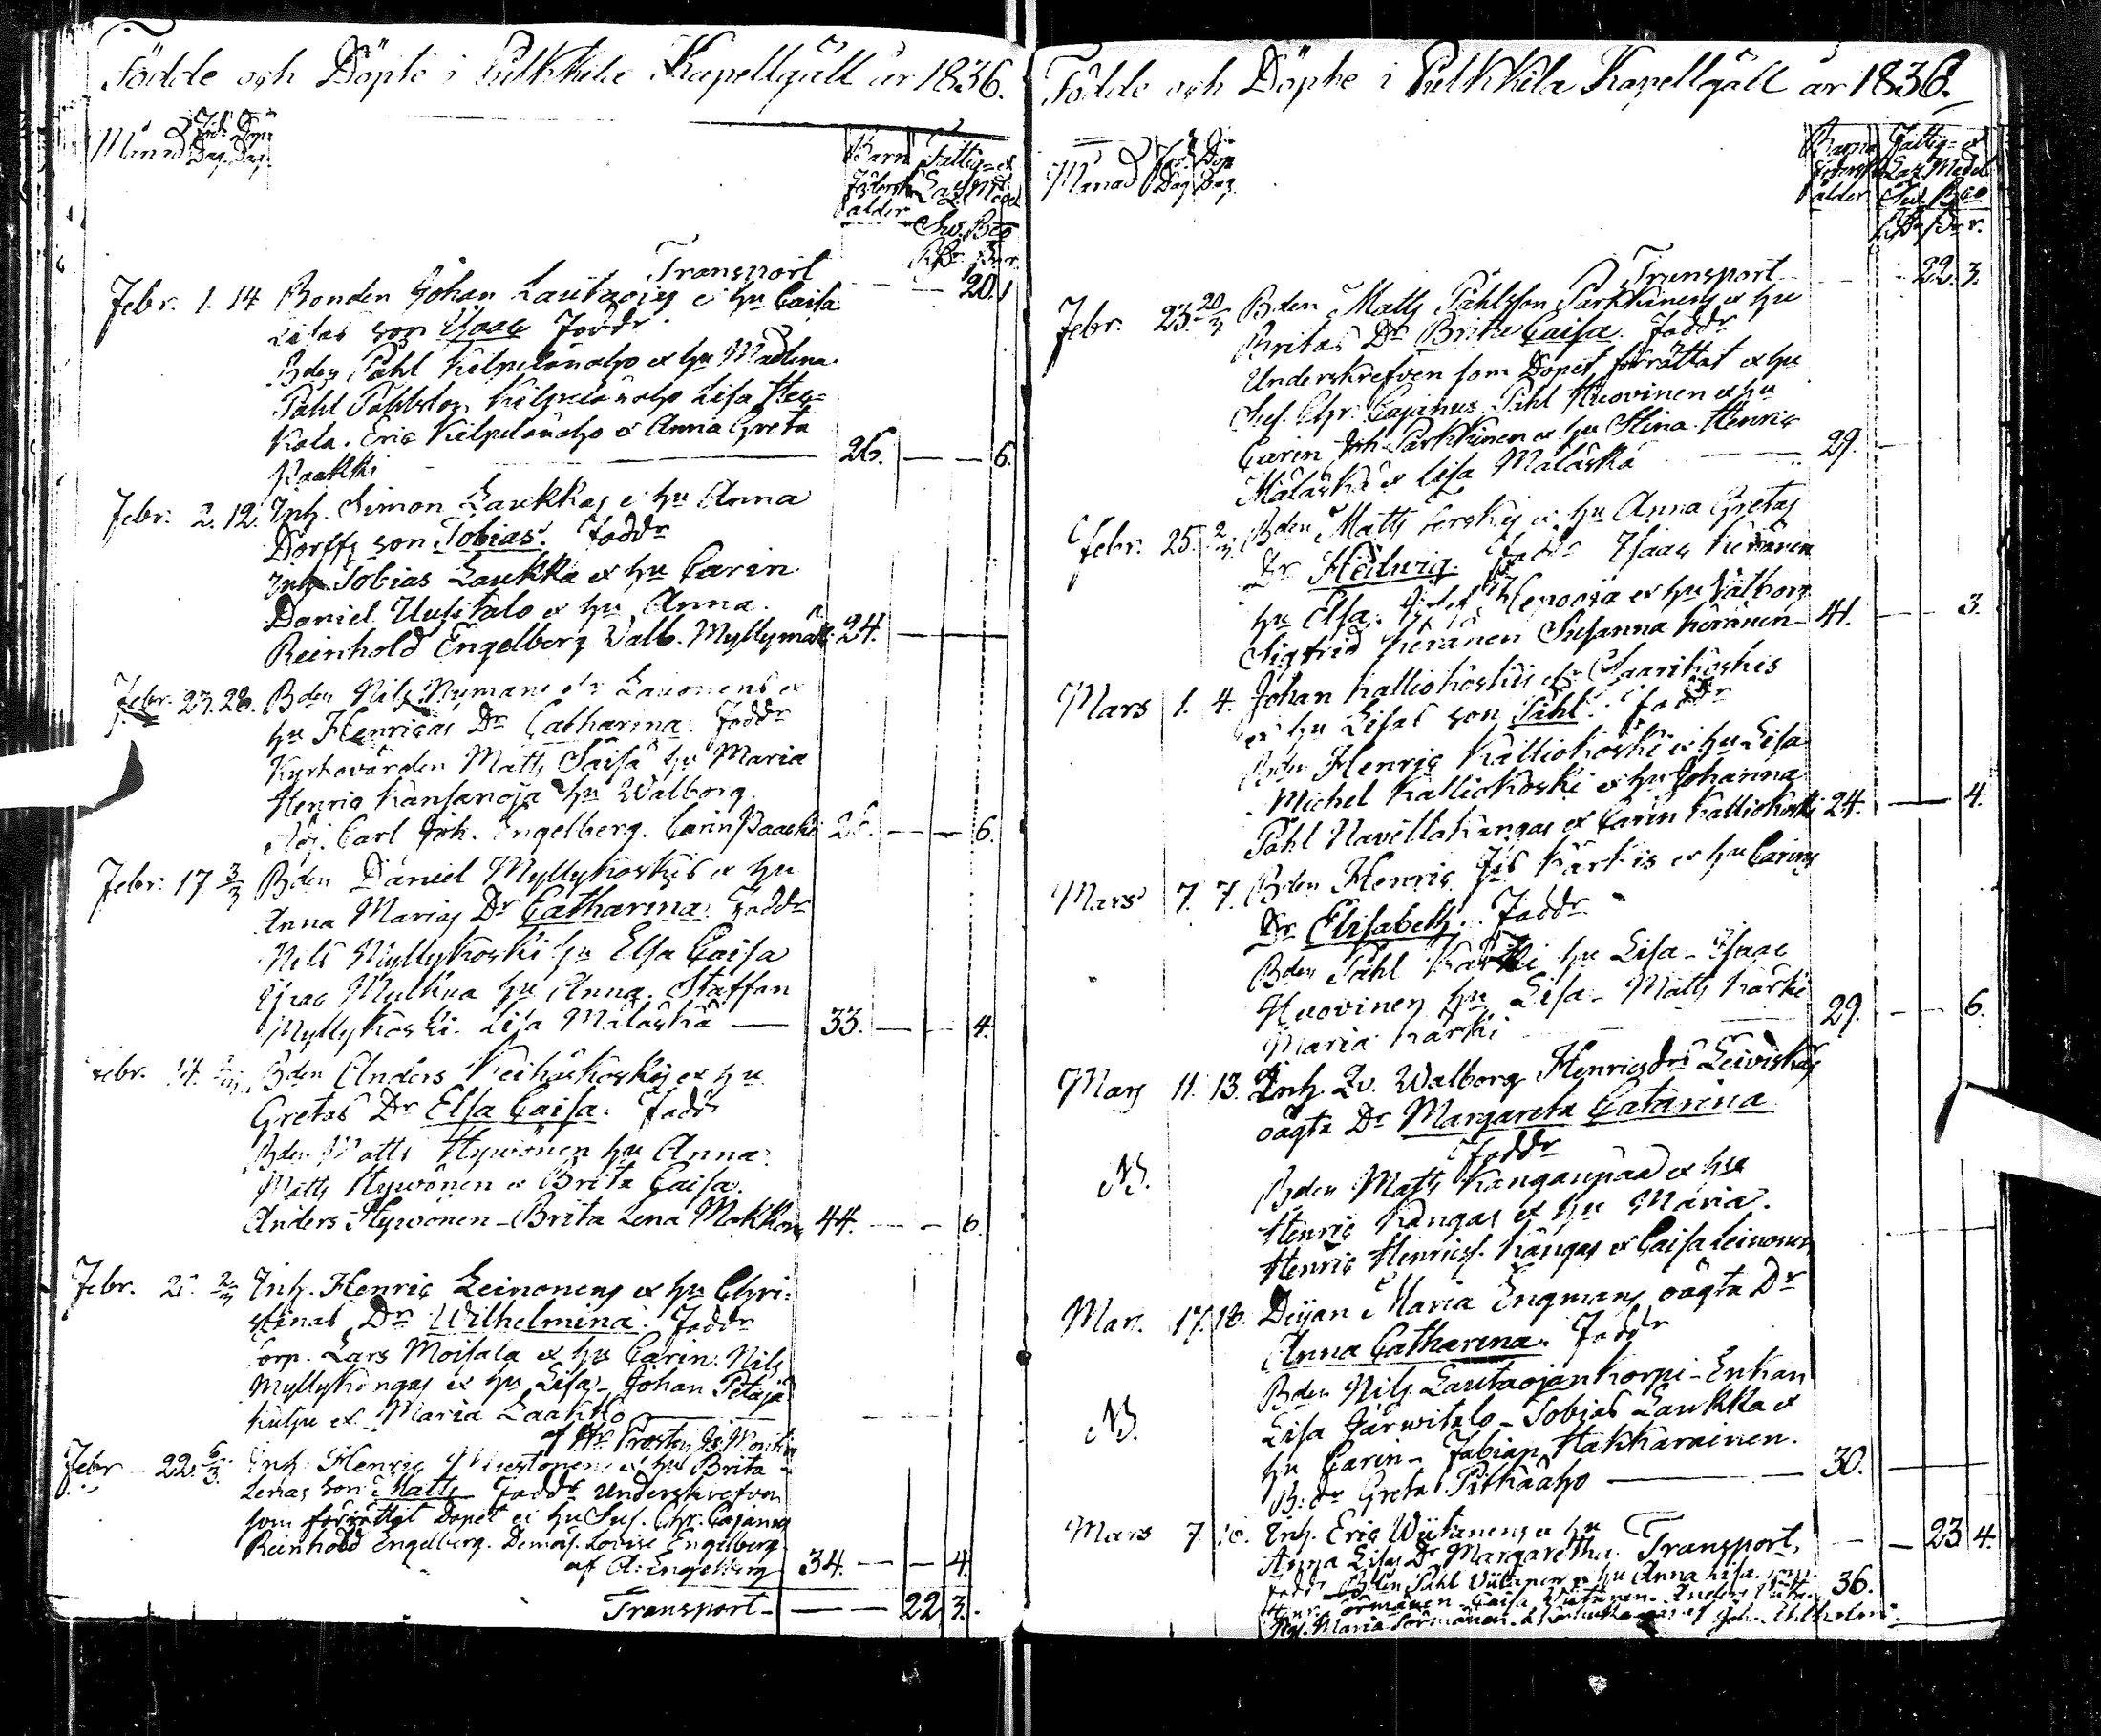 Födde och Döpte i Pulkkila Kapellgäll år 1836.
Månad Föd. Dag. Döp. Dag.
Barna Föderskans ålder
Fattig- & Laz. Medel
Sw. Bco
Transport — — 20. 1
Febr. 1. 14 Bonden Johan Lautaojas & hu Caisa
Lisas son Isaac Faddr
Bden Påhl Kilpelänaho & hu Madlena
Påhl Påhlsson Kilpelänaho Lisa Hei=
kola. Eric Kilpelänaho & Anna Greta
Paakki — 26. — — 6.
Febr. 2. 12. Inh. Simon Laukkas & hu Anna
Dorffs son Tobias. Faddr
Inh Tobias Laukka & hu Carin
Daniel Uusitalo & hu Anna.
Reinhold Engelberg Walb. Myllymäk 24. — —
Febr. 27. 28. Bden Nils Nymans Lauonens &
hu Henricas Dr Catharina. Faddr
Kyrkovärden Matts Saisa hu Maria
Henric Kansanoja hu Walborg.
Carl Joh. Engelberg. Carin Paacki — — 6.
Febr. 17 3/3 Bden Daniel Myllykoskis & hu
Anna Marias Dr Catharina. Faddr
Nils Myllykoski hu Elsa Caisa
Isaac Mulkua hu Anna. Staffan
Myllykoski. Lisa Mäläskä — 33. — — 4.
Febr. 14. Bden Anders Keihäskoskis & hu
Gretas Dr Elsa Caisa. Faddr
Bden Matts Hywönen hu Anna.
Matts Hywönen & Brita Caisa.
Anders Hywönen - Brita Lena Makkon 44. — — 6.
Febr. 2/3 Inh. Henric Leinonens & hu Chri=
stinas Dr Wilhelmina. Faddr
Corp. Lars Moisala & hu Carin. Nils
Myllykangas & hu Lisa - Johan Petäjä
& Maria Laakko —
af Hr Prosten
Febr 22. 6/3. Inh. Henric Mustonens & hu Brita
Lenas son Matts Faddr Underskrefven
som förrättat Dopet & hu Sus. Chr. Cajanus
Reinhold Engelberg. Demois. Lovise Engelberg.
af A: Engelberg 34. — — 4.
Transport — — 22. 3.
Födde och Döpte i Pulkkila Kapellgäll år 1836.
Månad Föd. Dag Döp Dag
Barna Föderskans ålder
Fattig- & Laz. Medel
Sw. Bco
Transport — - 22. 3.
Febr. 23. 20/3 Bden Matts Påhlsson Parkkinens & hu
Britas Dr Brita Caisa. Faddr
Underskrefven som Dopet förrättat & hu
Sus. Chr. Cajanus. Påhl Huovinen & hu
Carin Joh. Parkkinen & hu Stina. Henric
Mäläskä & Lisa Mäläskä — 29. —
Febr. 25. Bden Matts & hu Anna Gretas
Dr Hedwig. Faddr Isaac Keränen
hu Elsa. & hu Valborg
Sigfrid Keränen Susanna Keränen 41. — — 3.
Mars 1. 4. Johan Kalliokoskis eller Saarikoskis
& hu Lisas son Påhl. Faddr
Bden Henric Kalliokoski & hu Lisa
Michel Kalliokoski & hu Johanna
Påhl Navettakangas & Carin Kalliokoski 24. — — 4.
Mars 7. 7. Bden Henric Kärkis & hu Carins
Dr Elisabeth. Faddr
Bden Påhl Kärki hu Lisa - Isaac
Huovinen hu Lisa - Matts Kärki
Maria Kärki — 29. — 6.
Mars 11. 13. Inh. Walborg Henricsdrs Leiviskäs
oägta Dr Margareta Catarina
Faddr
NB. Bden Matts Kanganpää & hu
Henric Kangas & hu Maria.
Henric Henricss. Kangas & Caisa Leinonen
Mars 17. 18. Deijan Maria Engmans oägta Dr
Anna Catharina. Faddr
Bden Nils Lautaojankorpi - Enkan
NB. Lisa Järwitalo - Tobias Laukka &
hu Carin - Fabian Hakkarainen.
B: dr Greta Pitkäaho — 30. —
Mars 7. Inh. Eric Wiitanens & hu
Anna Lisas Dr Margaretha. Transport. — — 23 4.
Faddr Bden Påhl Wiitanen & hu Anna Lisa. 36.
Caisa Wiitanen. Anders
Maria Sormunen